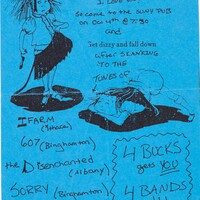 so come to the WHY PUB
on Dec 4th @ 7:30
and
get dizzy and fall down
after SKANKING
TO THE
TUNES OF
I FARM
(Ithaca)
607 (Binghamton)
the Disenchanted
(Albany)
SORRY (Binghamton)
4 BUCKS
gets YOU
4 BANDS